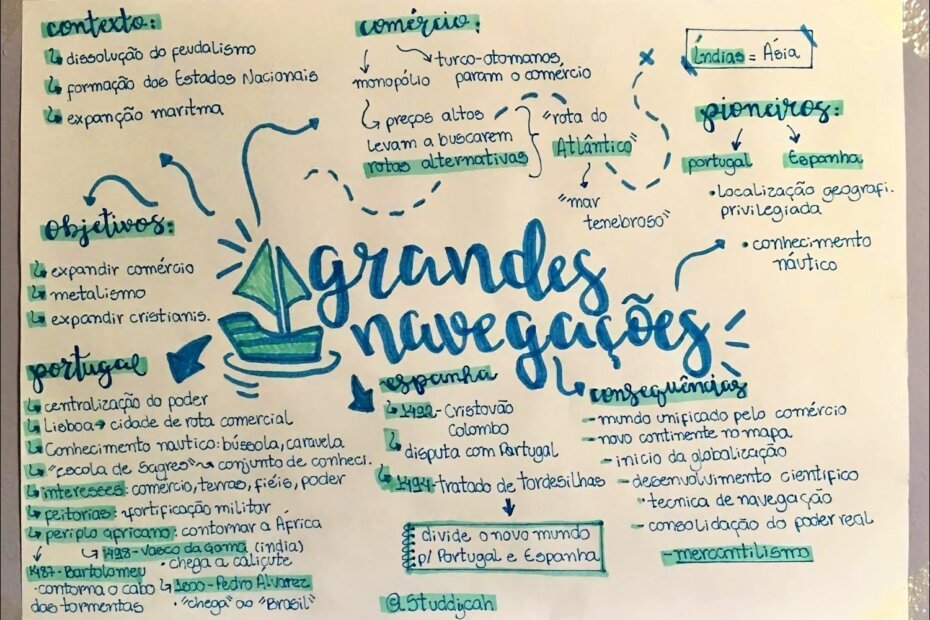 contexto:
dissolução do feudalismo
formação dos Estados Nacionais
expanção maritma
comércio:
monopólio
turco-otomanos
param o comércio
preços altos
levam a buscarem
rotas alternativas
"rota do
Atlântico"
"mar
tenebroso"
Índias = Ásia
pioneiros:
portugal
Espanha
•localização geografi.
privilegiada
•conhecimento
náutico
objetivos:
expandir comércio
metalismo
expandir cristianis.
grandes
navegações
portugal
centralização do poder
Lisboa → cidade de rota comercial
Conhecimento nautico: bússola, caravela
"escola de Sagres" → conjunto de conheci.
interesses: comércio, terras, fiéis, poder
feitorias: fortificação militar
periplo africano: contornar a África
1498-Vasco da Gama (índia)
•chega a calicute
1487-Bartolomeu
•contorna o cabo
das tormentas
1500-Pedro Alvarez
•"chega" ao "Brasil"
espanha
1492-Cristovão
Colombo
disputa com Portugal
1494-tratado de tordesilhas
divide o novo mundo
p/ Portugal e Espanha
@studdijcah
consequências
-mundo unificado pelo comércio
-novo continente no mapa
-inicio da globalização
-desenvolvimento científico
•tecnica de navegação
-consolidação do poder real
-mercantilismo